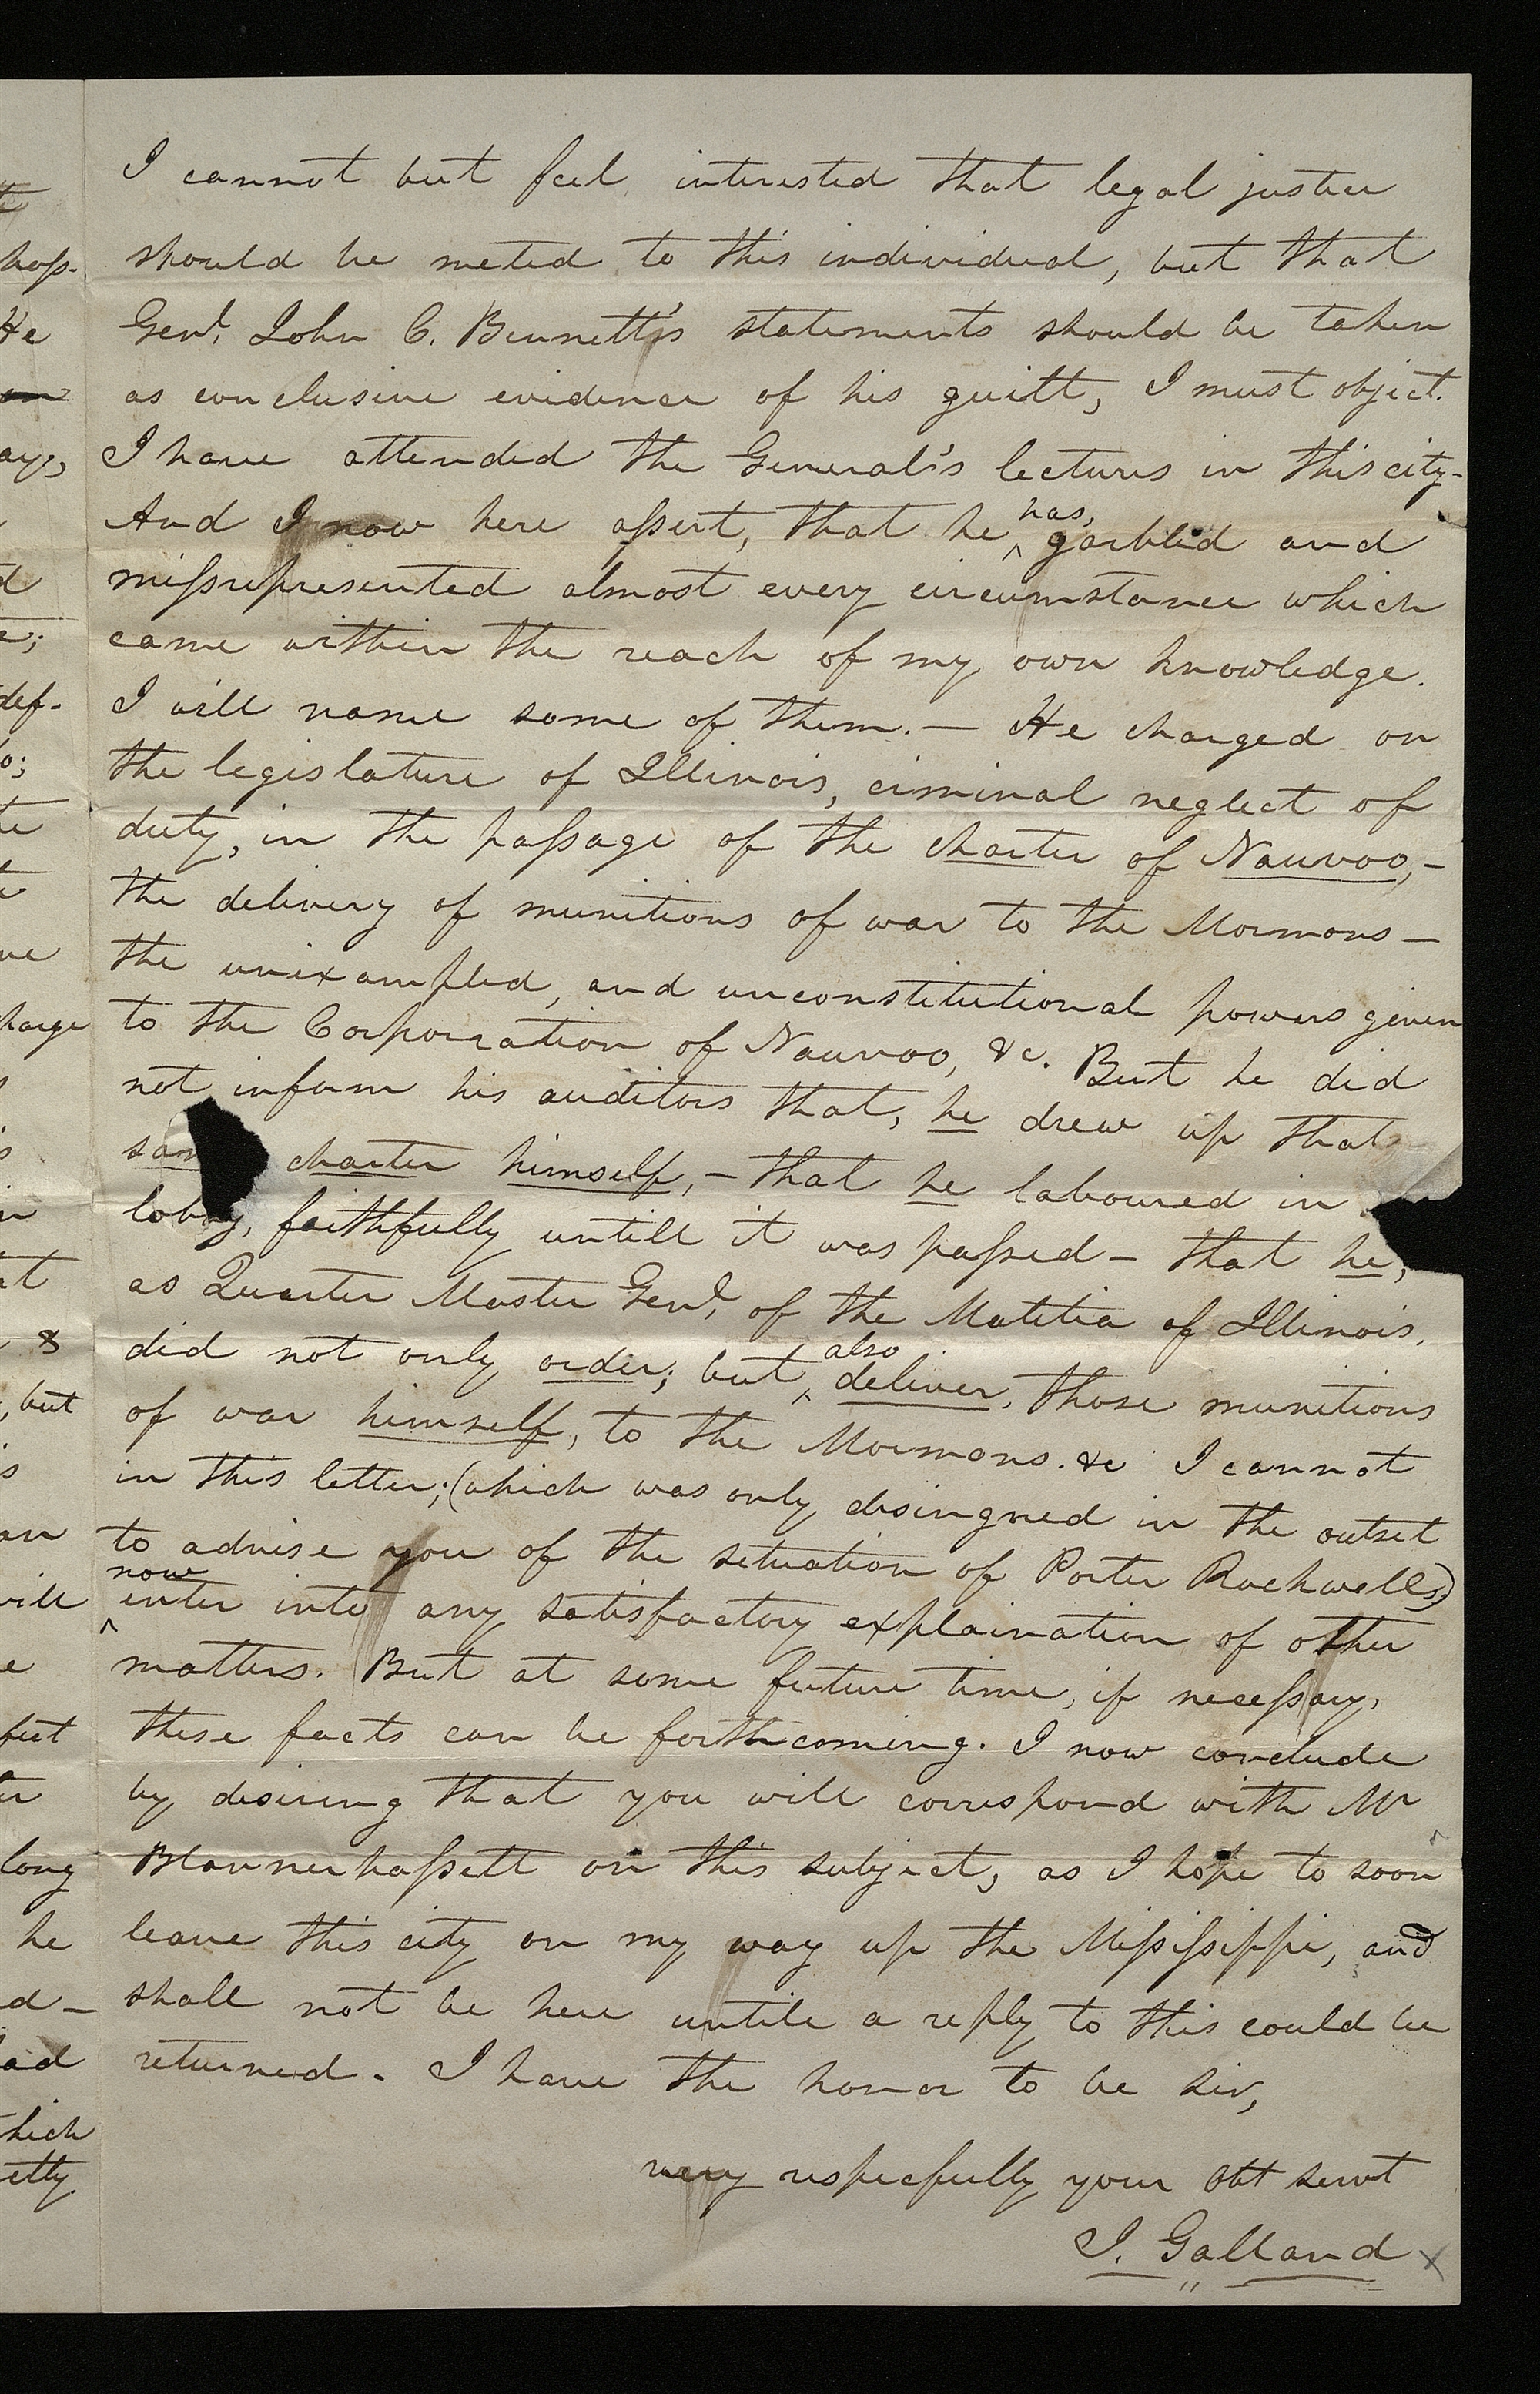 I cannot but feel interested that legal justice
should be meted to this individual, but that
Genl. John C. Bennett's statements should be taken
as conclusive evidence of his guilt, I must object.
I have attended the General's lectures in this city-
And I now here assert, that he has, garbled and
missrepresented almost every circumstance which
came within the reach of my own knowledge.
I will name some of them.— He charged on
the legislature of Illinois, ciminal neglect of
duty, in the passage of the charter of Nauvoo,-
the delivery of munitions of war to the Mormons—
the unixampled, and unconstitutional powers given
to the Corporation of Nauvoo, &c. But he did
not inform his auditors that, he drew up that
sam charter himself,- that he laboured in
lobby, faithfully untill it was passed— that he,
as Quarter Master Genl. of the Malitia of Illinois,
did not only order; but, also deliver, those munitions
of war himself, to the Mormons. &c I cannot
in this letter; (which was only desingned in the outset
to advise you of the situation of Porter Rockwells)
now enter into any satisfactory explaination of other
matters. But at some future time, if necessary,
these facts can be forthcoming. I now conclude
by desiring that you will correspond with Mr
Blannerhassett on this subject, as I hope to soon
leave this city on my way up the Mississippi, and
shall not be here untile a reply to this could be
returned. I have the honor to be sir,
very respecfully your obt servt
I. Galland
hass-
He
ays,
d
def-
o;
te
ve
harge
s
in
at
&
, but
is
an
will
e
fect
er
long
he
d—
ad
hich
etty